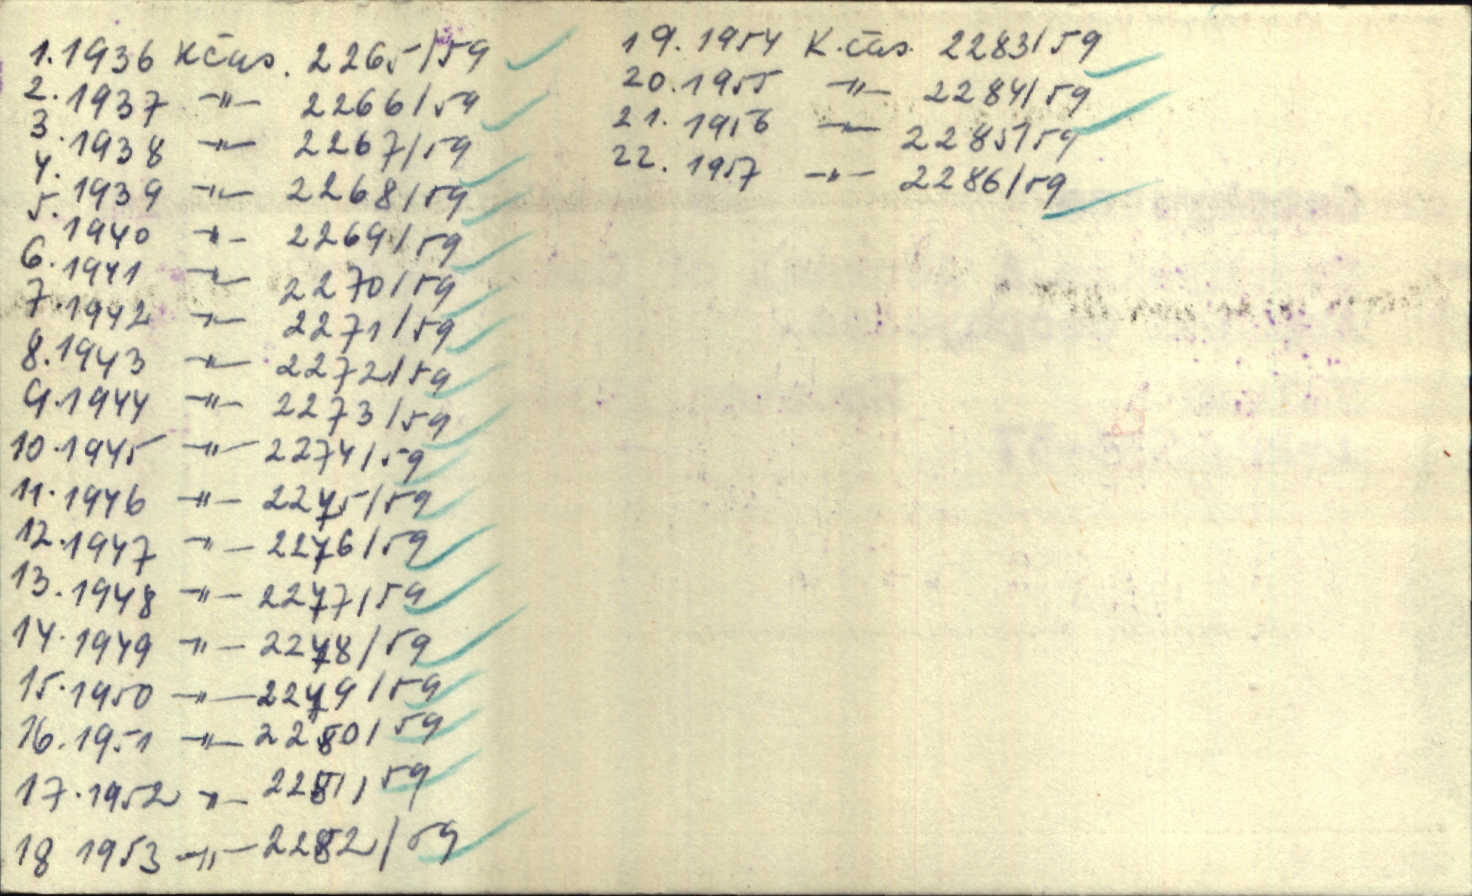 1. 1936 Kčas. 2265/59
2. 1937 -"- 2266/59
3. 1938 -"- 2267/59
4. 1939 -"- 2268/59
5. 1940 -"- 2269/59
6. 1941 -"- 2270/59
7. 1942 -"- 2271/59
8. 1943 -"- 2272/59
9. 1944 -"- 2273/59
10. 1945 -"- 2274/59
11. 1946 -"- 2275/59
12. 1947 -"- 2276/59
13. 1948 -"- 2277/59
14. 1949 -"- 2278/59
15. 1950 -"- 2279/59
16. 1951 -"- 2280/59
17. 1952 -"- 2281/59
18 1953 -"- 2282/59
19. 1954 K.čas. 2283/59
20. 1955 -"- 2284/59
21. 1956 -"- 2285/59
22. 1957 -"- 2286/59